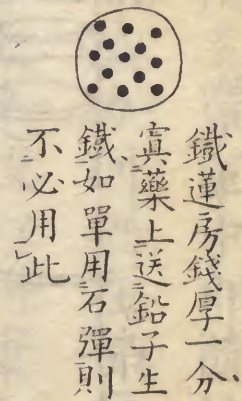 鐵蓮房錢厚一分
寘藥上送鉛子生
鐵如單用石彈則
不必用此